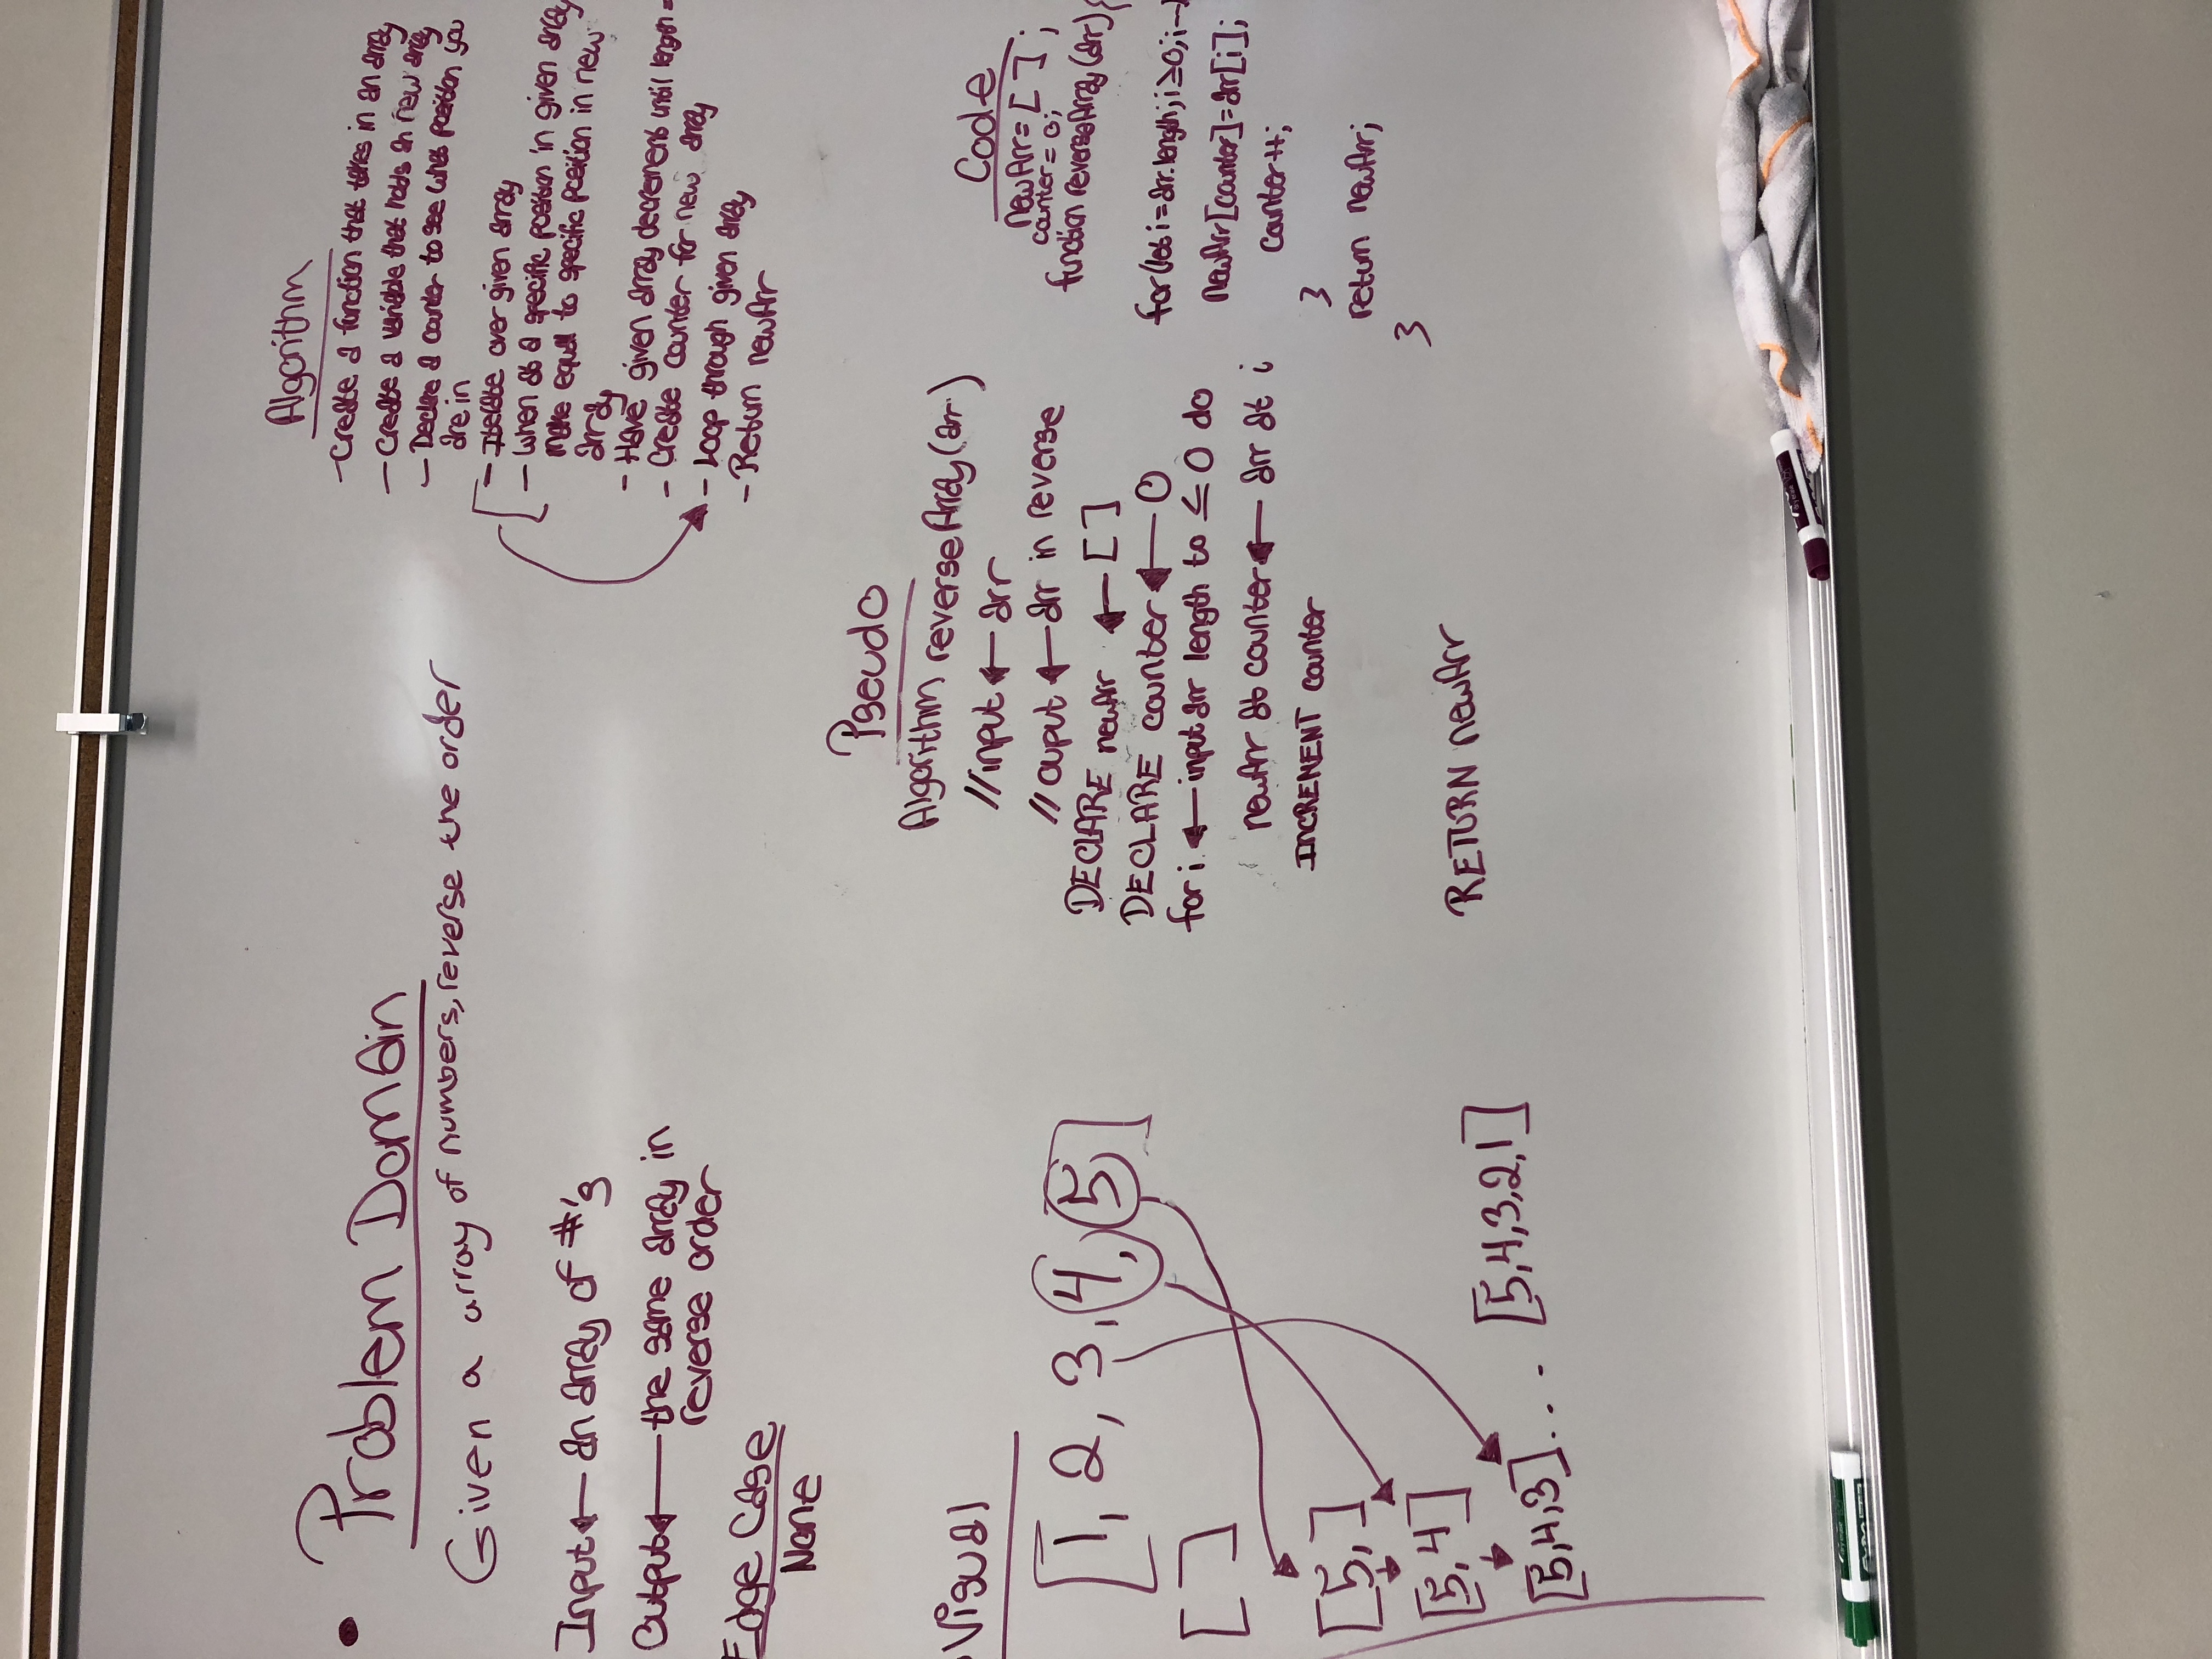 Problem Domain
Given a array of numbers, reverse the order
Input ← an array of #'s
Output ← the same array in
reverse order
Edge Case
None
Visual
[1, 2, 3, 4, 5]
[ ]
[5, ]
[5, 4]
[5,4,3]... [5,4,3,2,1]
Algorithm
- Create a function that takes in an array
- Create a variable that holds an new array
- Declare a counter to see what position you
are in
- Iterate over given array
- When at a specific position in given array
make equal to specific position in new
array
- Have given array decrement until length =
- Create counter for new array
- Loop through given array
- Return newArr
Pseudo
Algorithm reverseArray(arr)
//input ← arr
// ouput ← arr in reverse
DECLARE newArr ← [ ]
DECLARE counter ← 0
for i ← input arr length to ≤ 0 do
newArr at counter ← arr at i
INCREMENT counter
RETURN newArr
Code
newArr = [ ];
counter = 0;
function reverseArray(arr){
for(let i = arr.length; i ≥ 0; i--)
newArr[counter] = arr[i];
counter++;
}
return newArr;
}